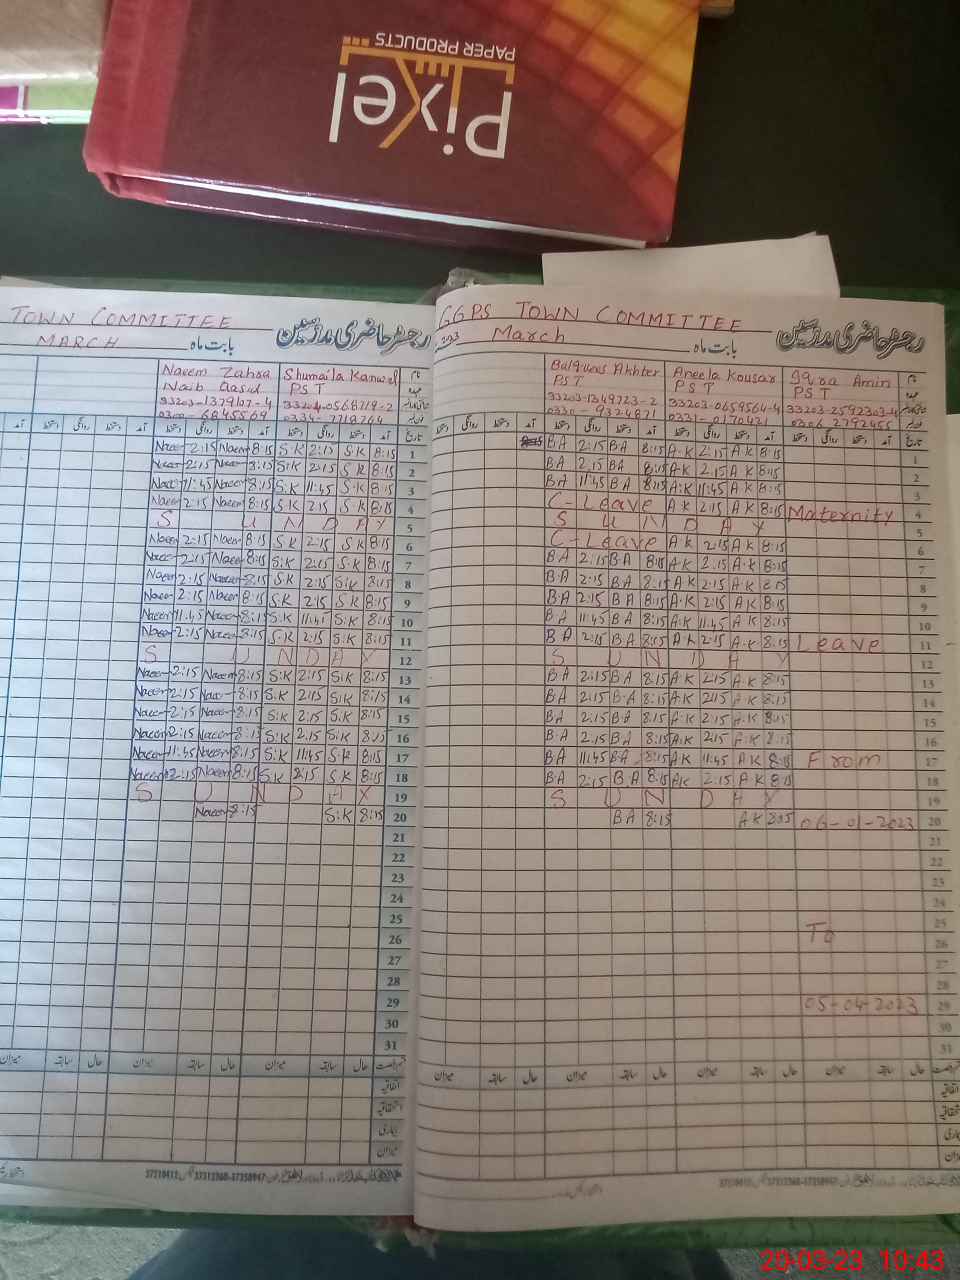 PiXel
PAPER PRODUCTS
TOWN COMMITTEE
رجسٹر حاضری مدرسین
MARCH
بابت ماہ
Naeem Zahra
Naib Qasid
33203-1329107-4
0300-6845569
Shumaila Kanwal
PST
33204-0568719-2
0334-7718764
آمد دستخط روانگی دستخط آمد دستخط روانگی دستخط تاریخ
Naeem 2:15 Naeem 8:15 S.K 2:15 S.K 8:15 1
Naeem 2:15 Naeem 8:15 S.K 2:15 S.K 8:15 2
Naeem 11:45 Naeem 8:15 S.K 11:45 S.K 8:15 3
Naeem 2:15 Naeem 8:15 S.K 2:15 S.K 8:15 4
S U N D A Y 5
Naeem 2:15 Naeem 8:15 S.K 2:15 S.K 8:15 6
Naeem 2:15 Naeem 8:15 S.K 2:15 S.K 8:15 7
Naeem 2:15 Naeem 8:15 S.K 2:15 S.K 8:15 8
Naeem 2:15 Naeem 8:15 S.K 2:15 S.K 8:15 9
Naeem 11:45 Naeem 8:15 S.K 11:45 S.K 8:15 10
Naeem 2:15 Naeem 8:15 S.K 2:15 S.K 8:15 11
S U N D A Y 12
Naeem 2:15 Naeem 8:15 S.K 2:15 S.K 8:15 13
Naeem 2:15 Naeem 8:15 S.K 2:15 S.K 8:15 14
Naeem 2:15 Naeem 8:15 S.K 2:15 S.K 8:15 15
Naeem 2:15 Naeem 8:15 S.K 2:15 S.K 8:15 16
Naeem 11:45 Naeem 8:15 S.K 11:45 S.K 8:15 17
Naeem 2:15 Naeem 8:15 S.K 2:15 S.K 8:15 18
S U N D A Y 19
Naeem 8:15 S.K 8:15 20
21
22
23
24
25
26
27
28
29
30
31
میزان سابقہ حال میزان سابقہ حال
اتفاقیہ
استحقاقیہ
بیماری
میزان
GGPS TOWN COMMITTEE
رجسٹر حاضری مدرسین
March
بابت ماہ
Balquees Akhter
PST
33203-1349723-2
0330-9324871
Aneela Kousar
PST
33203-0659564-4
0331-0170421
Iqra Amin
PST
33203-2592303-4
0306 2792455
BA 2:15 BA 8:15 A.K 2:15 A.K 8:15 1
BA 2:15 BA 8:15 A.K 2:15 A.K 8:15 2
BA 11:45 BA 8:15 A.K 11:45 A.K 8:15 3
C-Leave A.K 2:15 A.K 8:15 Maternity 4
S U N D A Y 5
C-Leave A.K 2:15 A.K 8:15 6
BA 2:15 BA 8:15 A.K 2:15 A.K 8:15 7
BA 2:15 BA 8:15 A.K 2:15 A.K 8:15 8
BA 2:15 BA 8:15 A.K 2:15 A.K 8:15 9
BA 11:45 BA 8:15 A.K 11:45 A.K 8:15 10
BA 2:15 BA 8:15 A.K 2:15 A.K 8:15 Leave 11
S U N D A Y 12
BA 2:15 BA 8:15 A.K 2:15 A.K 8:15 13
BA 2:15 BA 8:15 A.K 2:15 A.K 8:15 14
BA 2:15 BA 8:15 A.K 2:15 A.K 8:15 15
BA 2:15 BA 8:15 A.K 2:15 A.K 8:15 16
BA 11:45 BA 8:15 A.K 11:45 A.K 8:15 From 17
BA 2:15 BA 8:15 A.K 2:15 A.K 8:15 18
S U N D A Y 19
BA 8:15 A.K 8:15 06-01-2023 20
21
22
23
24
25
To 26
27
28
05-04-2023 29
30
31
میزان سابقہ حال میزان سابقہ حال میزان سابقہ حال
20-03-23 10:43